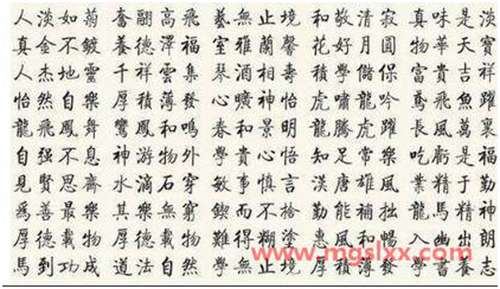 人淡如菊 奮翮高飛 藝無止境 和敬清寂 真味是淡
真金不鍍 養德澤福 室雅蘭馨 花好月圓 物華天寶
人杰地靈 千祥雲集 琴酒相壽 積學儲 富貴吉祥
怡然自樂 厚積薄發 心曠神怡 虎嘯龍吟 鳶飛魚躍
龍飛鳳舞 鸞鳳和鳴 春和景明 龍騰虎躍 長風萬裏
自强不息 神游物外 學貴心悟 知足常樂 吃虧是福
見賢思齊 水滴石穿 敏事慎言 漢唐雄風 業精于勤
爲善最樂 其樂無窮 鍥而不捨 勤能補拙 龍馬精神
厚德載物 厚德載物 難得糊塗 惠風和暢 入幽出朗
馬到功成 道法自然 學無止境 厚積薄發 學書養志
www.mgslxx.com